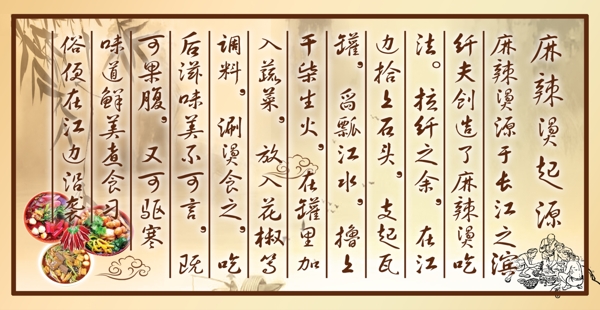 麻辣烫起源
麻辣烫源于长江之滨
纤夫创造了麻辣烫吃
法。拉纤之余,在江
边拾上石头,支起瓦
罐,舀瓢江水,撸上
干柴生火,在罐里加
入蔬菜,放入花椒等
调料,涮烫食之,吃
后滋味美不可言,既
可果腹,又可驱寒
味道鲜美煮食习
俗便在江边沿袭